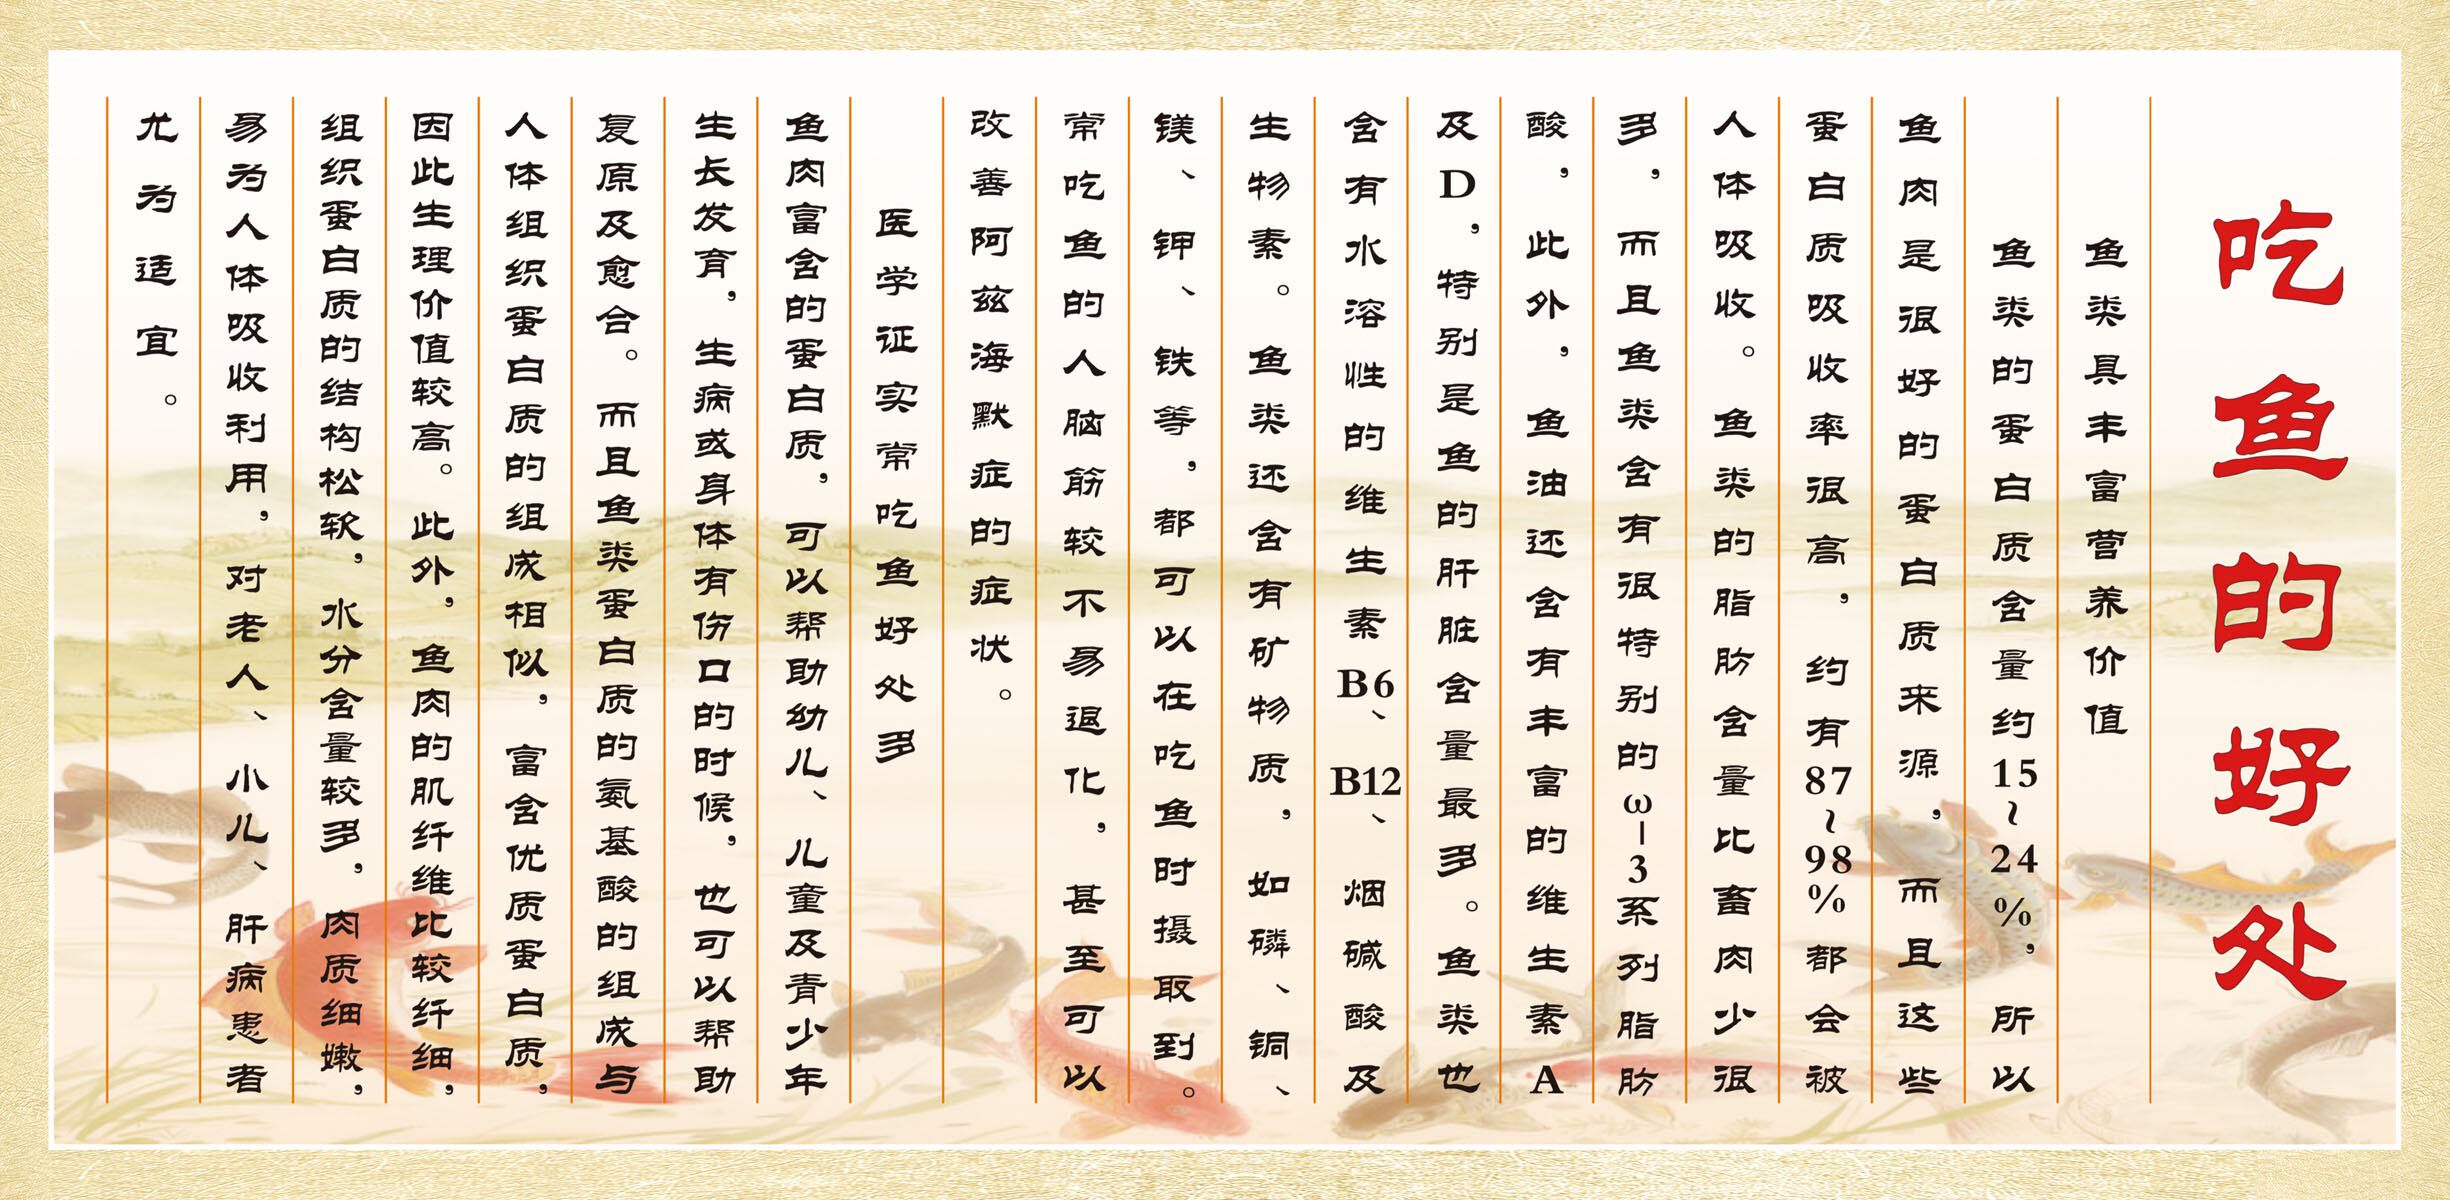 吃鱼的好处
鱼类具丰富营养价值
鱼类的蛋白质含量约15~24%，所以
鱼肉是很好的蛋白质来源，而且这些
蛋白质吸收率很高，约有87~98%都会被
人体吸收。鱼类的脂肪含量比畜肉少很
多，而且鱼类含有很特别的ω-3系列脂肪
酸，此外，鱼油还含有丰富的维生素A
及D，特别是鱼的肝脏含量最多。鱼类也
含有水溶性的维生素B6、B12、烟碱酸及
生物素。鱼类还含有矿物质，如磷、铜、
镁、钾、铁等，都可以在吃鱼时摄取到。
常吃鱼的人脑筋较不易退化，甚至可以
改善阿兹海默症的症状。
医学证实常吃鱼好处多
鱼肉富含的蛋白质，可以帮助幼儿、儿童及青少年
生长发育，生病或身体有伤口的时候，也可以帮助
复原及愈合。而且鱼类蛋白质的氨基酸的组成与
人体组织蛋白质的组成相似，富含优质蛋白质，
因此生理价值较高。此外，鱼肉的肌纤维比较纤细，
组织蛋白质的结构松软，水分含量较多，肉质细嫩，
易为人体吸收利用，对老人、小儿、肝病患者
尤为适宜。